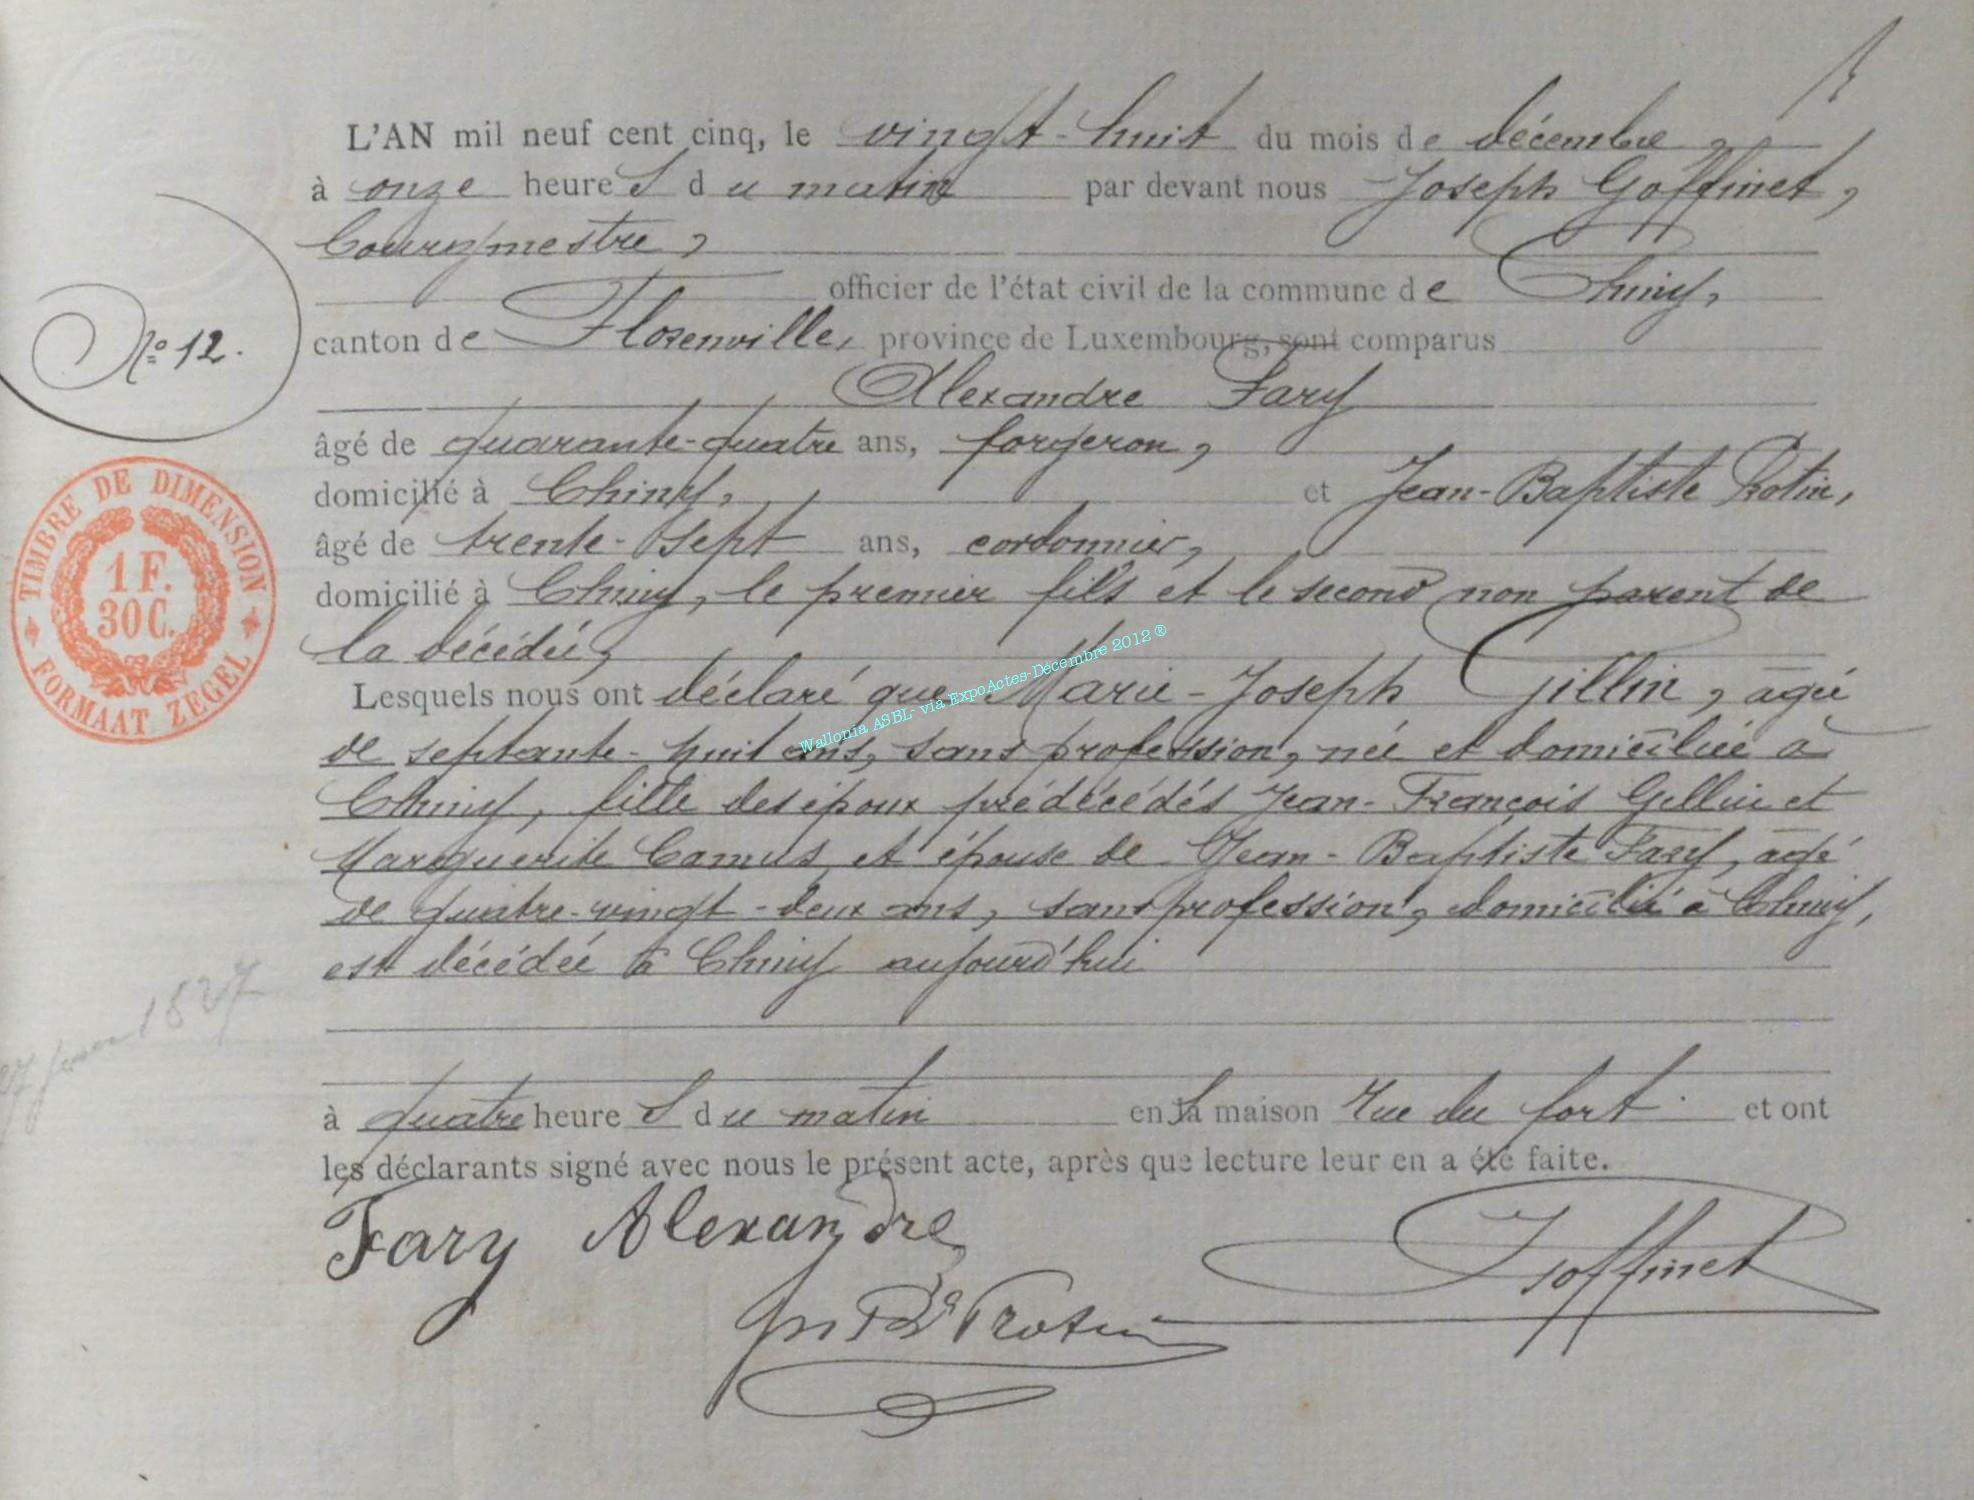 L'AN mil neuf cent cinq, le vingt-huit du mois de décembre,
à onze heures du matin par devant nous Joseph Goffinet,
Bourgmestre,
officier de l'état civil de la commune de Chiny,
N° 12.
canton de Florenville, province de Luxembourg, sont comparus
Alexandre Fary
âgé de quarante-quatre ans, forgeron,
domicilié à Chiny, et Jean-Baptiste Protin,
âgé de trente-sept ans, cordonnier,
domicilié à Chiny, le premier fils et le second non parent de
la décédée,
TIMBRE DE DIMENSION
1 F.
30 C.
FORMAAT ZEGEL
Lesquels nous ont déclaré que Marie-Joseph Gillin, agée
de septante-huit ans, sans profession, née et domiciliée à
Chiny, fille des époux prédécédés Jean-François Gillin et
Marguerite Camus, et épouse de Jean-Baptiste Fary, agé
de quatre-vingt-deux ans, sans profession, domicilié à Chiny,
est décédée à Chiny aujourd'hui
1827
à quatre heures du matin en sa maison Rue du fort. et ont
les déclarants signé avec nous le présent acte, après que lecture leur en a été faite.
Fary Alexandre
Goffinet
Jn Bte Protin
Wallonia ASBL- via ExpoActes-Décembre 2012 ®